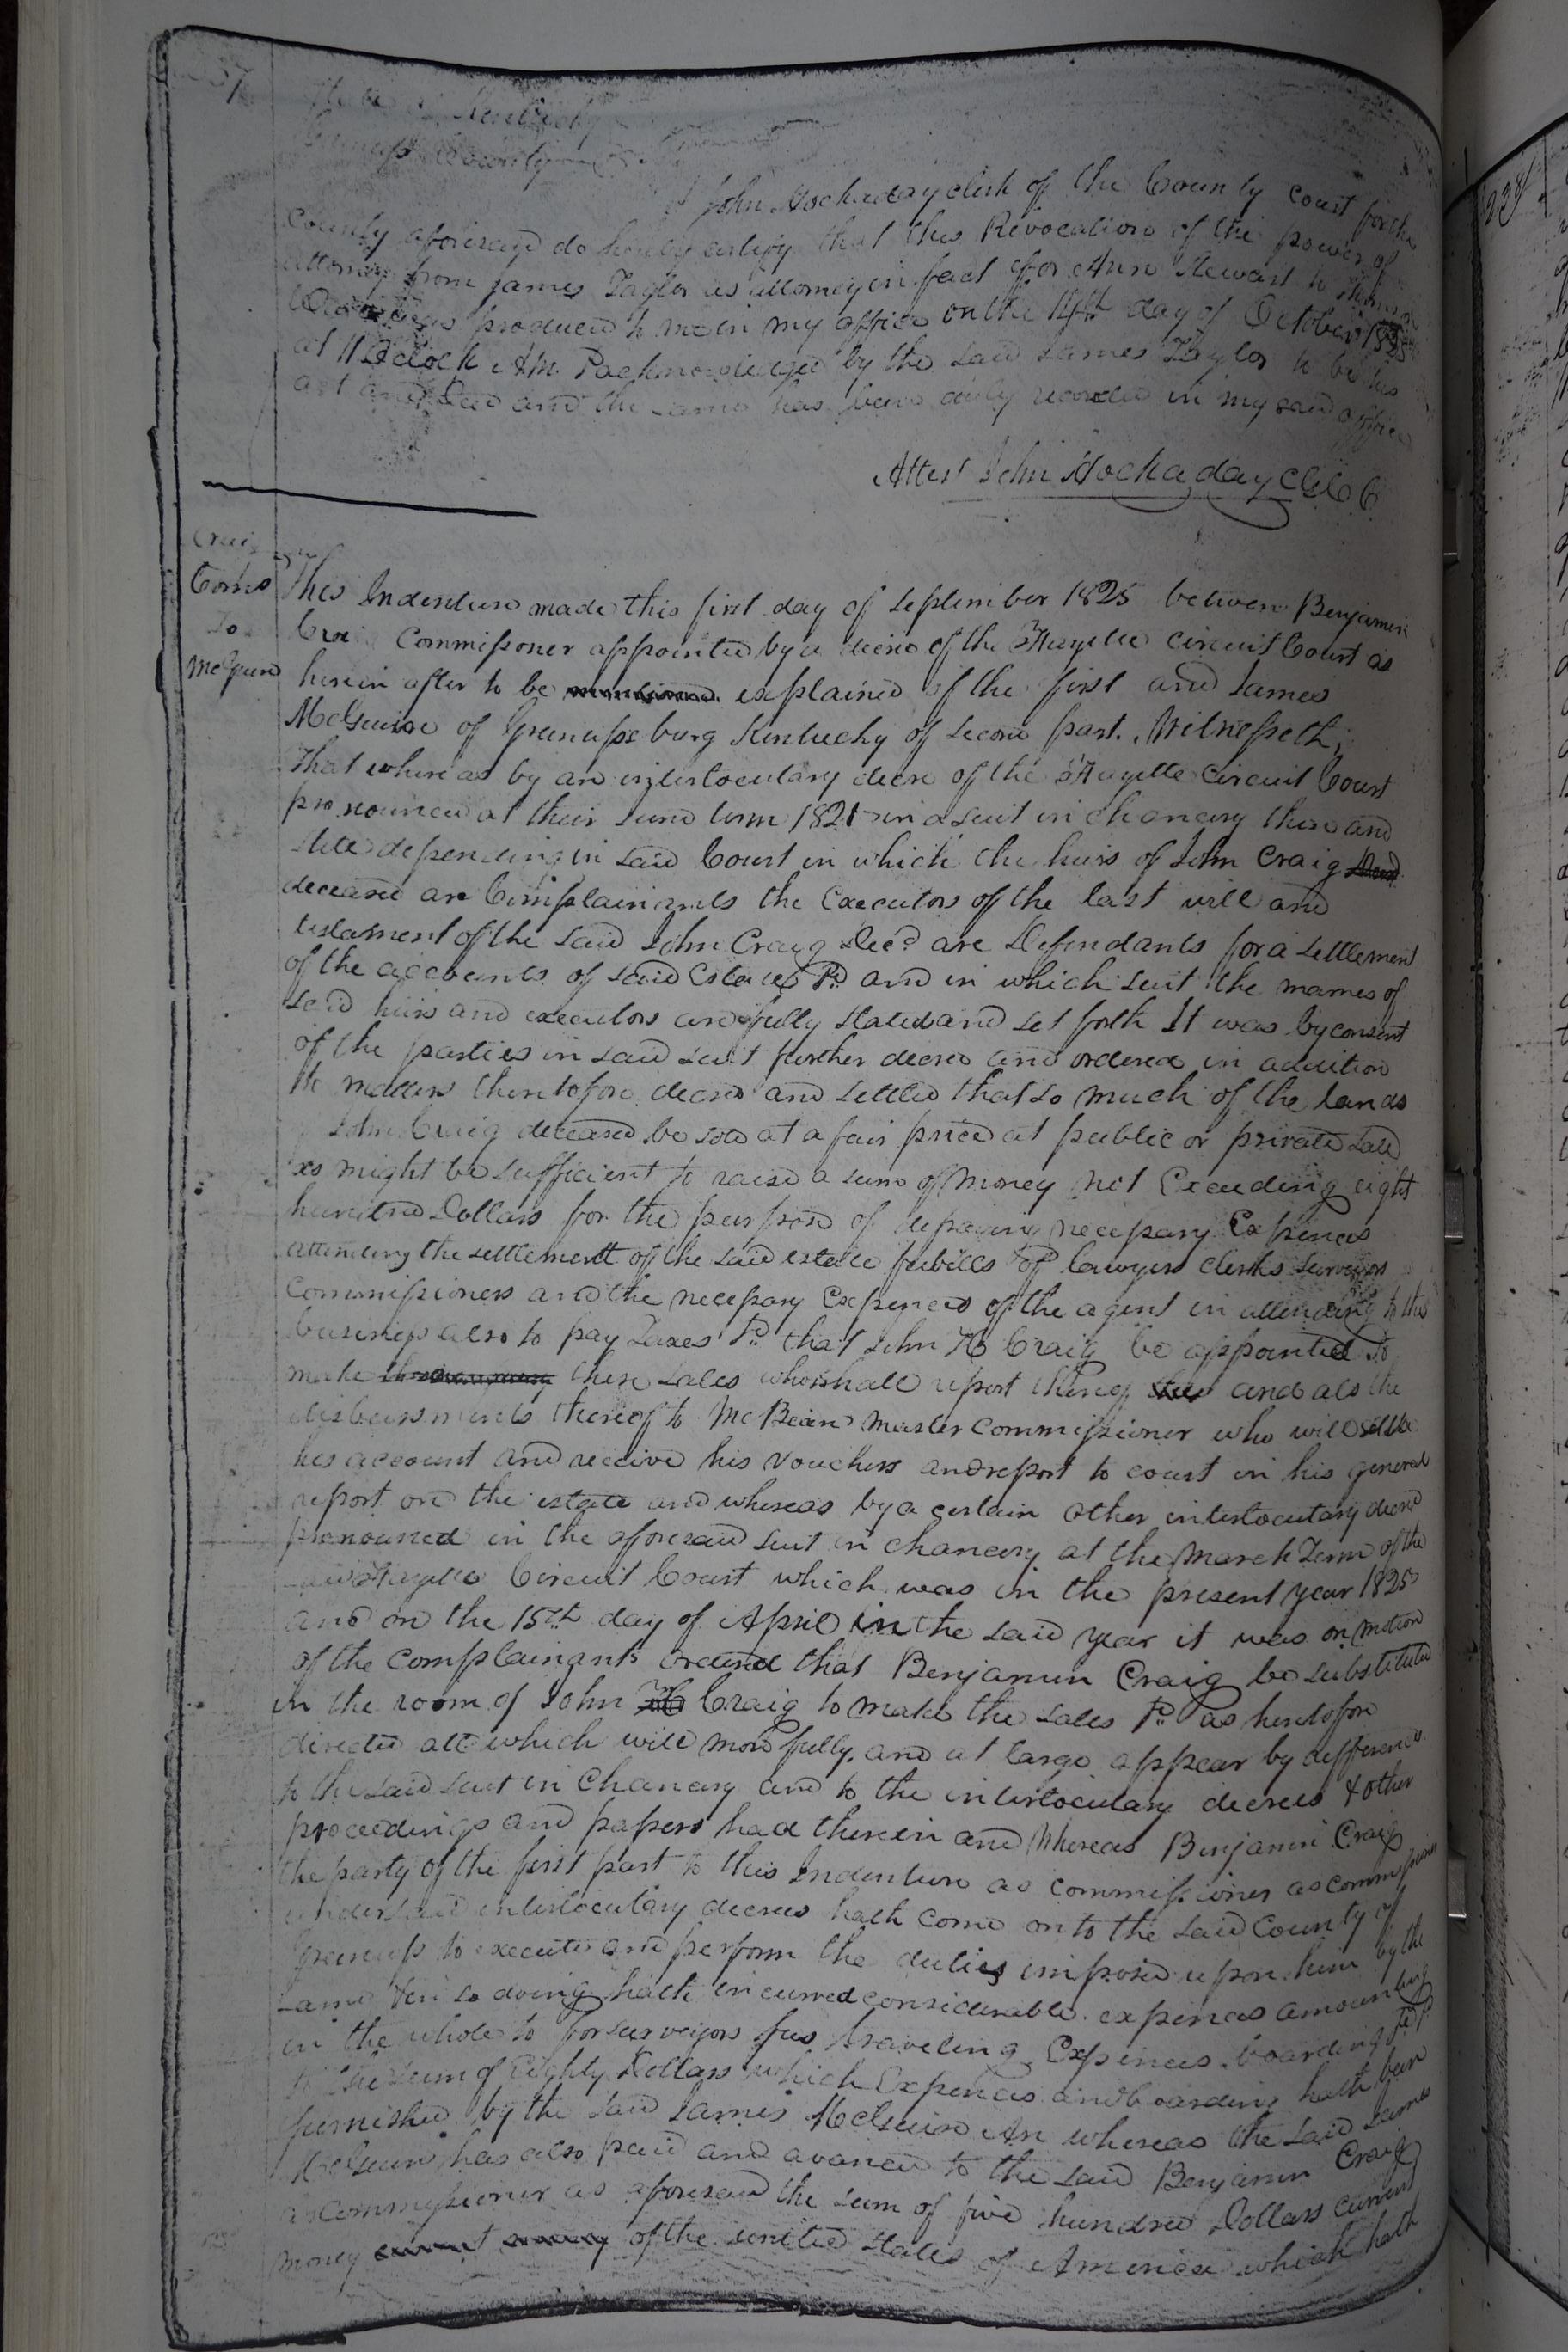 37
State of Kentucky
Greenup County
I John Hockaday clerk of the County court for the
County aforesaid do hereby certify that this Revocation of the power of
attorney from James Taylor as attorney in fact for Ann Stewart to
was produced to me in my office on the 14th day of October 1825
at 11 Oclock AM & acknowledged by the said James Taylor to be his
act and deed and the same has been duly recorded in my said office
Attest John Hockaday CGCC
Craig
Coms
To
McGuire
This Indenture made this first day of September 1825 between Benjamin
Craig Commissioner appointed by a decree of the Fayette circuit Court as
herein after to be mentioned explained of the first and James
McGuire of Greenupsburg Kentucky of second part. Witnesseth;
That where as by an interlocutary decre of the Fayette Circuit Court
pronounced at their June term 1821 in a suit in chancery there and
still depending in said Court in which the heirs of John Craig Decd
deceased are Complainants the Executors of the last will and
testament of the said John Craig Decd are Defendants for a settlement
of the accounts of said Estate &c and in which suit the names of
said heirs and executors are fully stated and set forth It was by consent
of the parties in said suit further decred and ordered in addition
to matters theretofore decred and settled that so much of the lands
John Craig deceased be sold at a fair price at public or private sale
as might be sufficient to raise a sum of money not Exceeding eight
hundred Dollars for the purpose of defraying necessary Expences
attending the settlement of the said estate feebills of lawyers clerks surveyors
Commissioners and the necessary Expences of the agent in attending to this
business also to pay Taxes &c that John H Craig be appointed to
make these sales who shall report thereof and als the
disbursments thereof to McBean Master Commissioner who will settle
his account and receive his vouchers and report to court in his general
report on the estate and whereas by a certain other interlocutary decree
pronounced in the aforesaid suit in chancery at the March Term of the
said Fayette Circuit Court which was in the present year 1825
and on the 15th day of April in the said year it was on motion
of the Complainants ordered that Benjamin Craig be substituted
in the room of John H Craig to make the sales &c as heretofore
directed all which will more fully, and at large appear by defference
to the said suit in Chancery and to the interlocutary decrees & other
proceedings and papers had therein and Whereas Benjamin Craig
the party of the first part to this Indenture as commissioner as commissioner
under said interlocutary decrees hath come on to the said County of
Greenup to execute and perform the duties imposed upon him by the
same & in so doing hath incurred considerable expences amounting
in the whole to for surveyors fees traveling Expences boarding &c &c
to the sum of Eighty Dollars which Expences and boarding hath been
furnished by the said James McGuire An whereas the said James
McGuire has also paid and avanced to the said Benjamin Craig
as Commissioner as aforesaid the sum of five hundred Dollars current
money current money of the united states of America which hath